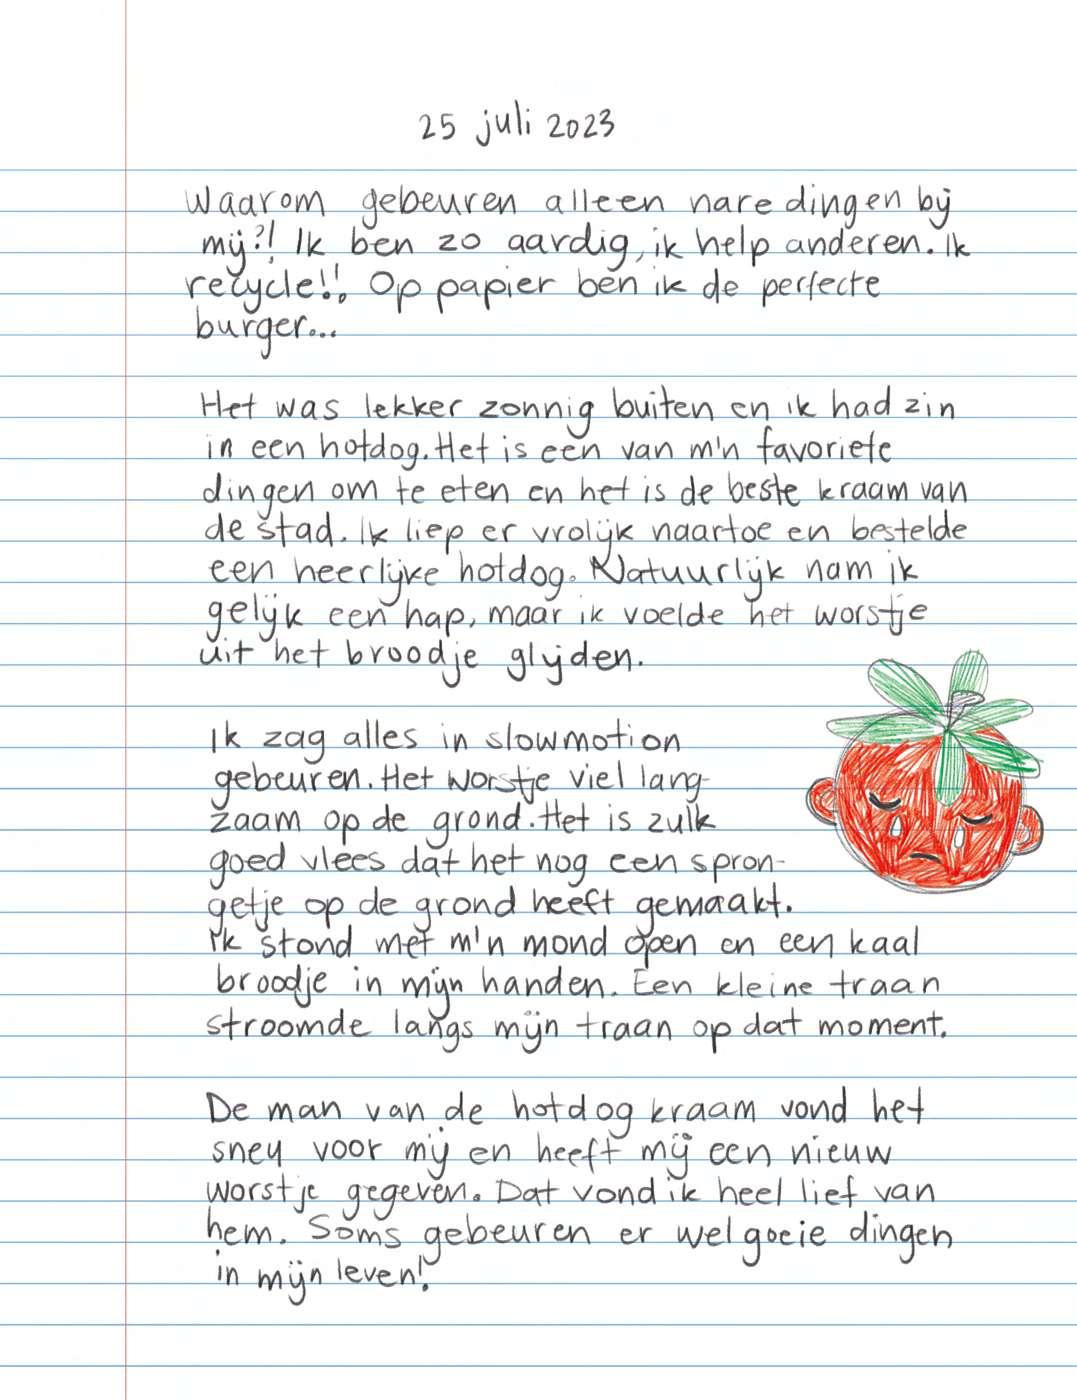 25 juli 2023
Waarom gebeuren alleen nare dingen bij
mij?! Ik ben zo aardig, ik help anderen. Ik
recycle!! Op papier ben ik de perfecte
burger...
Het was lekker zonnig buiten en ik had zin
in een hotdog. Het is een van m'n favoriete
dingen om te eten en het is de beste kraam van
de stad. Ik liep er vrolijk naartoe en bestelde
een heerlijke hotdog. Natuurlijk nam ik
gelijk een hap, maar ik voelde het worstje
uit het broodje glijden.
Ik zag alles in slowmotion
gebeuren. Het worstje viel lang-
zaam op de grond. Het is zulk
goed vlees dat het nog een spron-
getje op de grond heeft gemaakt.
Ik stond met m'n mond open en een kaal
broodje in mijn handen. Een kleine traan
stroomde langs mijn traan op dat moment.
De man van de hotdog kraam vond het
sneu voor mij en heeft mij een nieuw
worstje gegeven. Dat vond ik heel lief van
hem. Soms gebeuren er wel goeie dingen
in mijn leven!